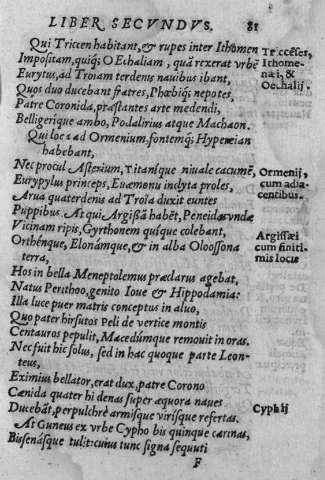 LIBER SECVNDVS. 81
Qui Triccen habitant, & rupes inter Ithomen
Impositam, quiq; Oechaliam, quā rexerat vrbē
Eurytus, ad Troiam terdenis nauibus ibant,
Quos duo ducebant fratres, Phœbiq; nepotes,
Patre Coronida, præstantes arte medendi,
Belligerique ambo, Podalirius atque Machaon.
Qui loca ad Ormenium, fontemq; Hypereian
habebant,
Nec procul Asterium, Titanisque niuale cacumē,
Eurypylus princeps, Euæmonu inclyta proles,
Arua quaterdenis ad Troïa duxit euntes
Puppibus. At qui Argissā habēt, Peneidas vndæ
Vicinam ripis, Gyrthonem quique colebant,
Orthénque, Elonámque, & in alba Oloossona
terra,
Hos in bella Meneptolemus præclarus agebat,
Natus Perithoo, genito Ioue & Hippodamia:
Illa luce puer matris conceptus in aluo,
Quo pater hirsutos Peli de vertice montis
Centauros pepulit, Macedúmque remouit in oras.
Nec fuit hic solus, sed in hac quoque parte Leon-
teus,
Eximius bellator, erat dux, patre Corono
Cænida quater hi denas super æquora naues
Ducebāt, perpulchrè armisque virísque refertas.
At Guneus ex vrbe Cypho bis quinque carinas,
Bissenásque tulit: cuius tunc signa sequuti
F
Triccēses,
Ithome-
nai, &
Oechalij.
Ormenij,
cum adia-
centibus.
Argissæi
cum finiti-
mis locis
Cyphij